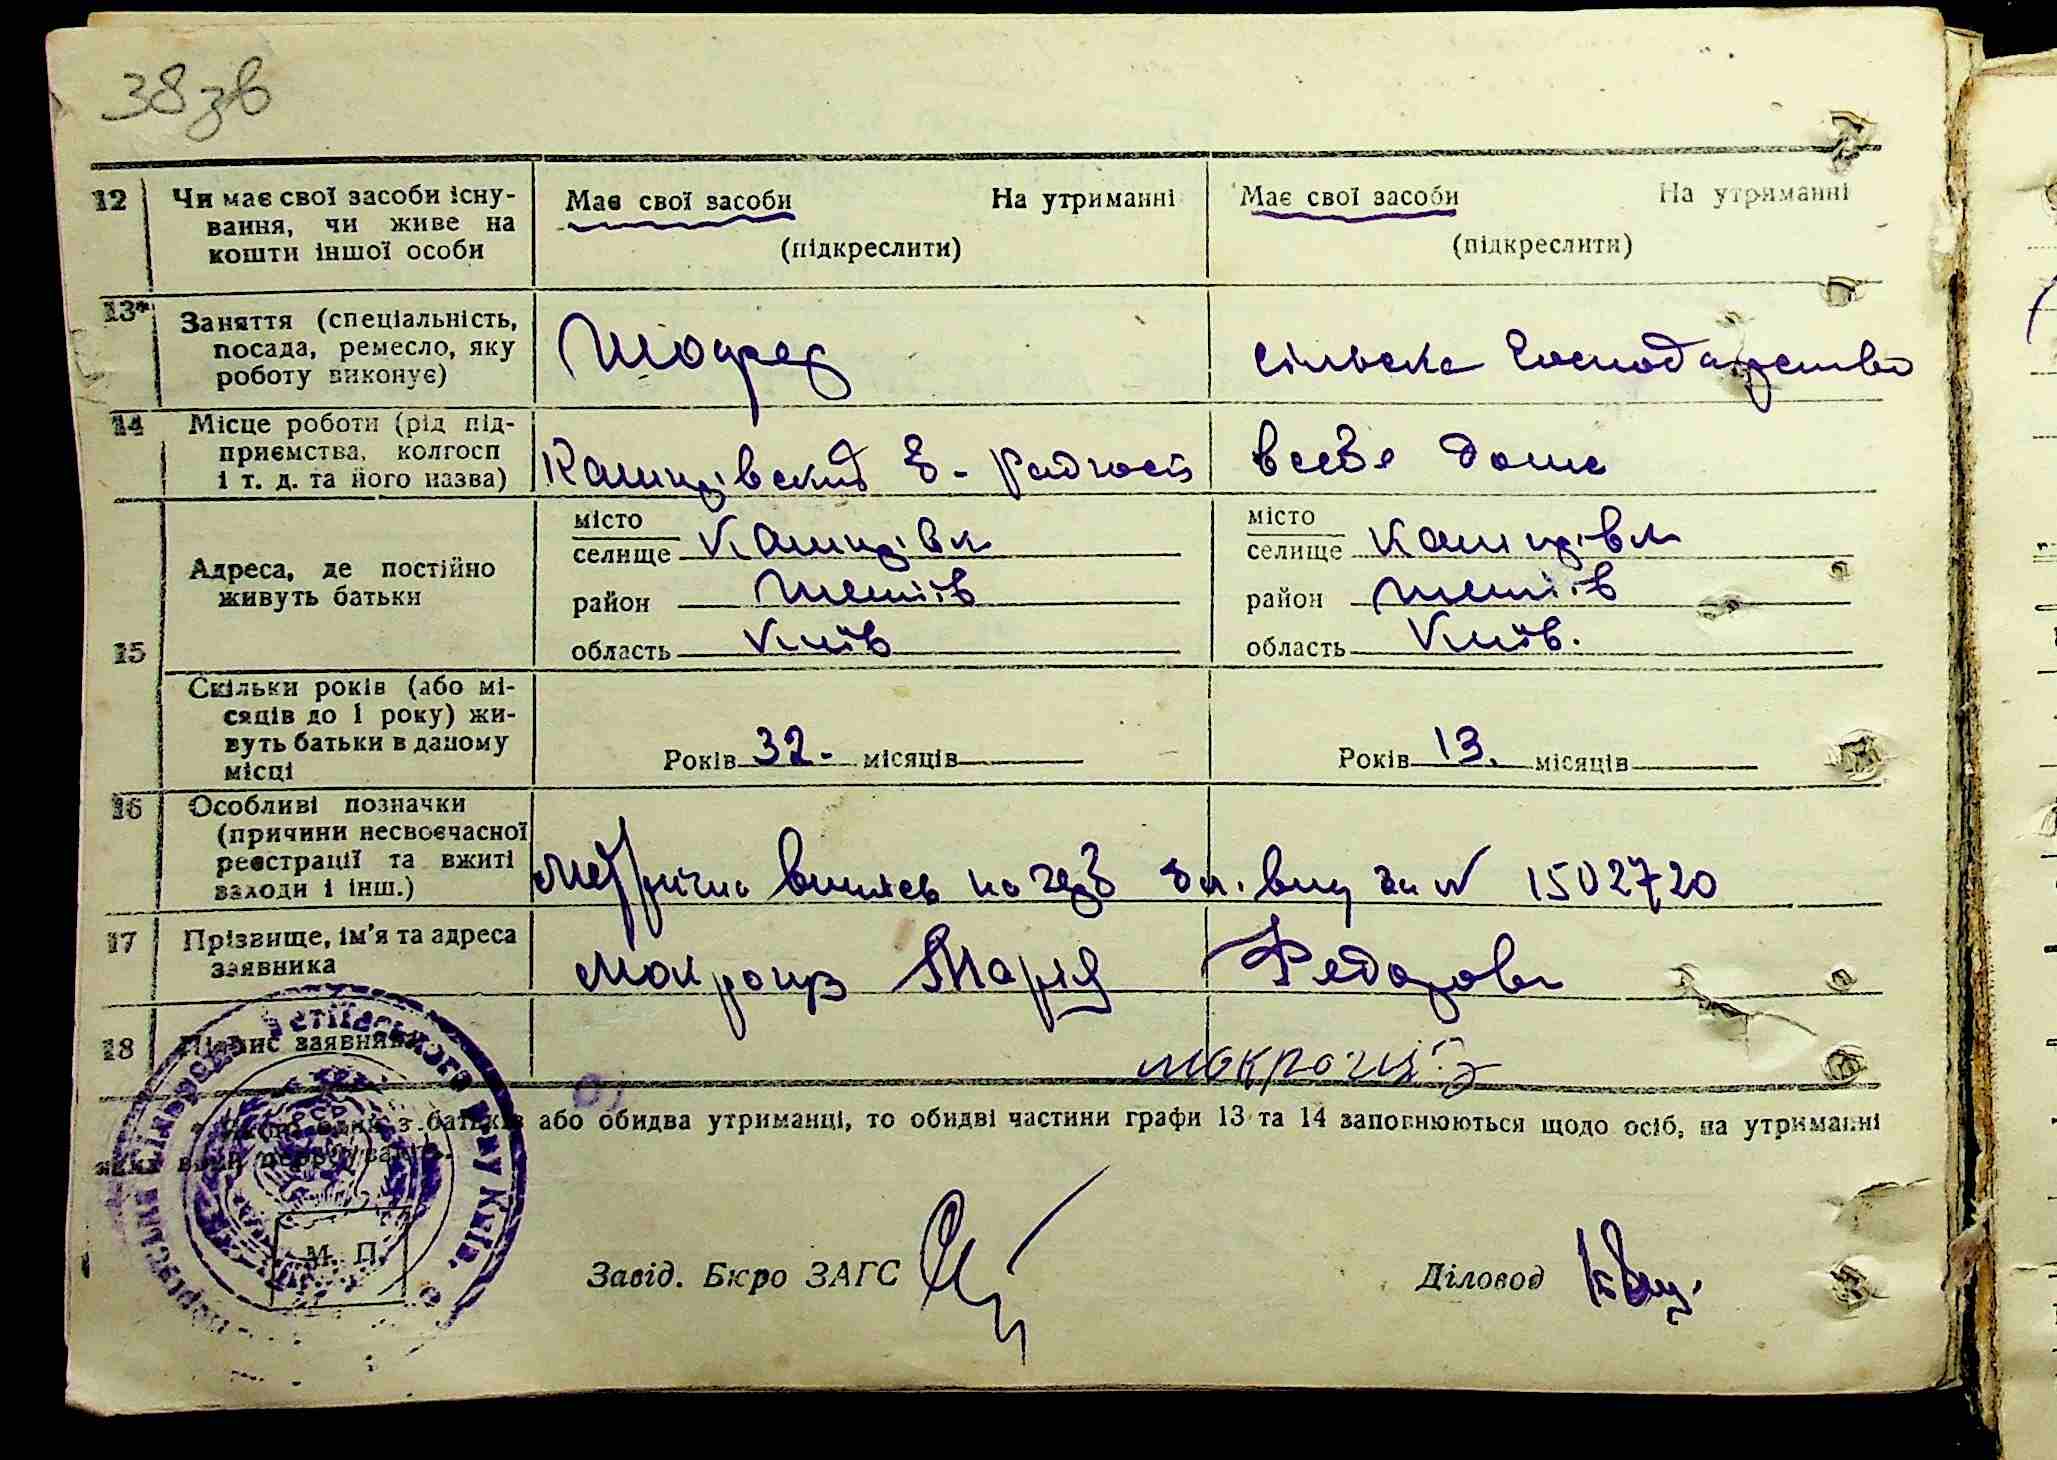 38зв
12 Чи має свої засоби існу- Має свої засоби На утриманні Має свої засоби На утриманні
вання, чи живе на
кошти іншої особи (підкреслити) (підкреслити)
13* Заняття (спеціальність,
посада, ремесло, яку Шофер сільске господарство
роботу виконує)
14 Місце роботи (рід під-
приємства, колгосп всебе дома
і т. д. та його назва)
місто місто
селище селище
15 Адреса, де постійно
живуть батьки
район Тетіїв район Тетіїв
область Київ область Київ.
Скільки років (або мі-
сяців до 1 року) жи-
вуть батьки в даному Років 32. місяців Років 13. місяців
місці
16 Особливі позначки
(причини несвоєчасної
реєстрації та вжиті
заходи і інш.) за № 1502720
17 Прізвище, ім'я та адреса
заявника Марія Федоровн
18 Підпис заявника
* Якщо один з батьків або обидва утриманці, то обидві частини графи 13 та 14 заповнюються щодо осіб, на утриманні
яких вони перебувають.
М. П.
Завід. Бюро ЗАГС Діловод